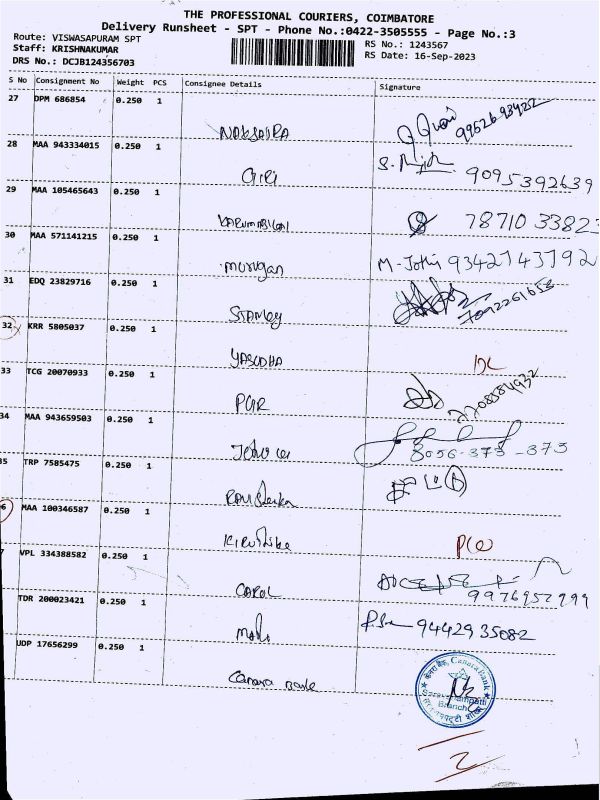 THE PROFESSIONAL COURIERS, COIMBATORE
Delivery Runsheet - SPT - Phone No.:0422-3505555 - Page No.:3
Route: VISWASAPURAM SPT
RS No.: 1243567
Staff: KRISHNAKUMAR
RS Date: 16-Sep-2023
DRS No.: DCJB124356703
S No Consignment No Weight PCS Consignee Details Signature
27 DPM 686854 0.250 1
99526-93422
28 MAA 943334015 0.250 1
Giri 9095392639
29 MAA 105465643 0.250 1
78710 33823
30 MAA 571141215 0.250 1
murugan M-Jothi 9342743792
31 EDQ 23829716 0.250 1
Stanley 7092261653
32 KRR 5805037 0.250 1
YASODHA DL
33 TCG 20070933 0.250 1
PGR
34 MAA 943659503 0.250 1
8056-373-373
35 TRP 7585475 0.250 1
36 MAA 100346587 0.250 1
VPL 334388582 0.250 1
CAROL 9976957999
TDR 200023421 0.250 1
9442935082
UDP 17656299 0.250 1
Canara Bank
Canara Bank
Branch
2